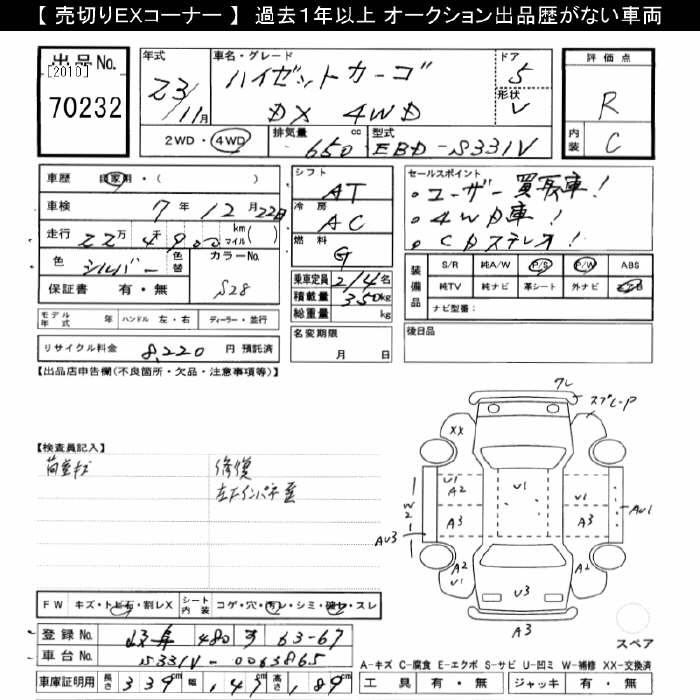 【 売切りEXコーナー 】 過去1年以上 オークション出品歴がない車両
出品No.
[2010]
70232
年式
23/11月
車名・グレード
ハイゼットカーゴ
DX 4WD
ドア
5
形状
V
評価点
R
内装
C
2WD・4WD
排気量
650cc
型式
EBD-S331V
車歴
自家用・( )
車検
7年12月22日
走行
22万4千900 km マイル( )
色
シルバー
色替
カラーNo.
S28
保証書 有・無
シフト
AT
冷房
AC
燃料
G
乗車定員 2/4名
積載量 350kg
総重量 kg
セールスポイント
・ユーザー買取車!
・4WD車!
・CDステレオ!
装備品
S/R 純A/W P/S P/W ABS
純TV 純ナビ 革シート 外ナビ
ナビ型番:
モデル年式 年 ハンドル 左・右 ディーラー・並行
リサイクル料金 8,220 円 預託済
名変期限
月 日
後日品
【出品店申告欄(不良箇所・欠品・注意事項等)】
【検査員記入】
修復
フレ
スプレーP
XX
U1
A2
U1
U1
A1
W2
A3
A3
AU1
AU3
A2
U1
A2
U3
A3
スペア
FW キズ・トビ石・割レX
シート内装 コゲ・穴・汚レ・シミ・破レ・スレ
登録No. 岐阜 480 す 63-67
車台No. S331V-0063865
車庫証明用 長さ 339cm 幅 147cm 高さ 189cm
A-キズ C-腐食 E-エクボ S-サビ U-凹ミ W-補修 XX-交換済
工具 有・無 ジャッキ 有・無